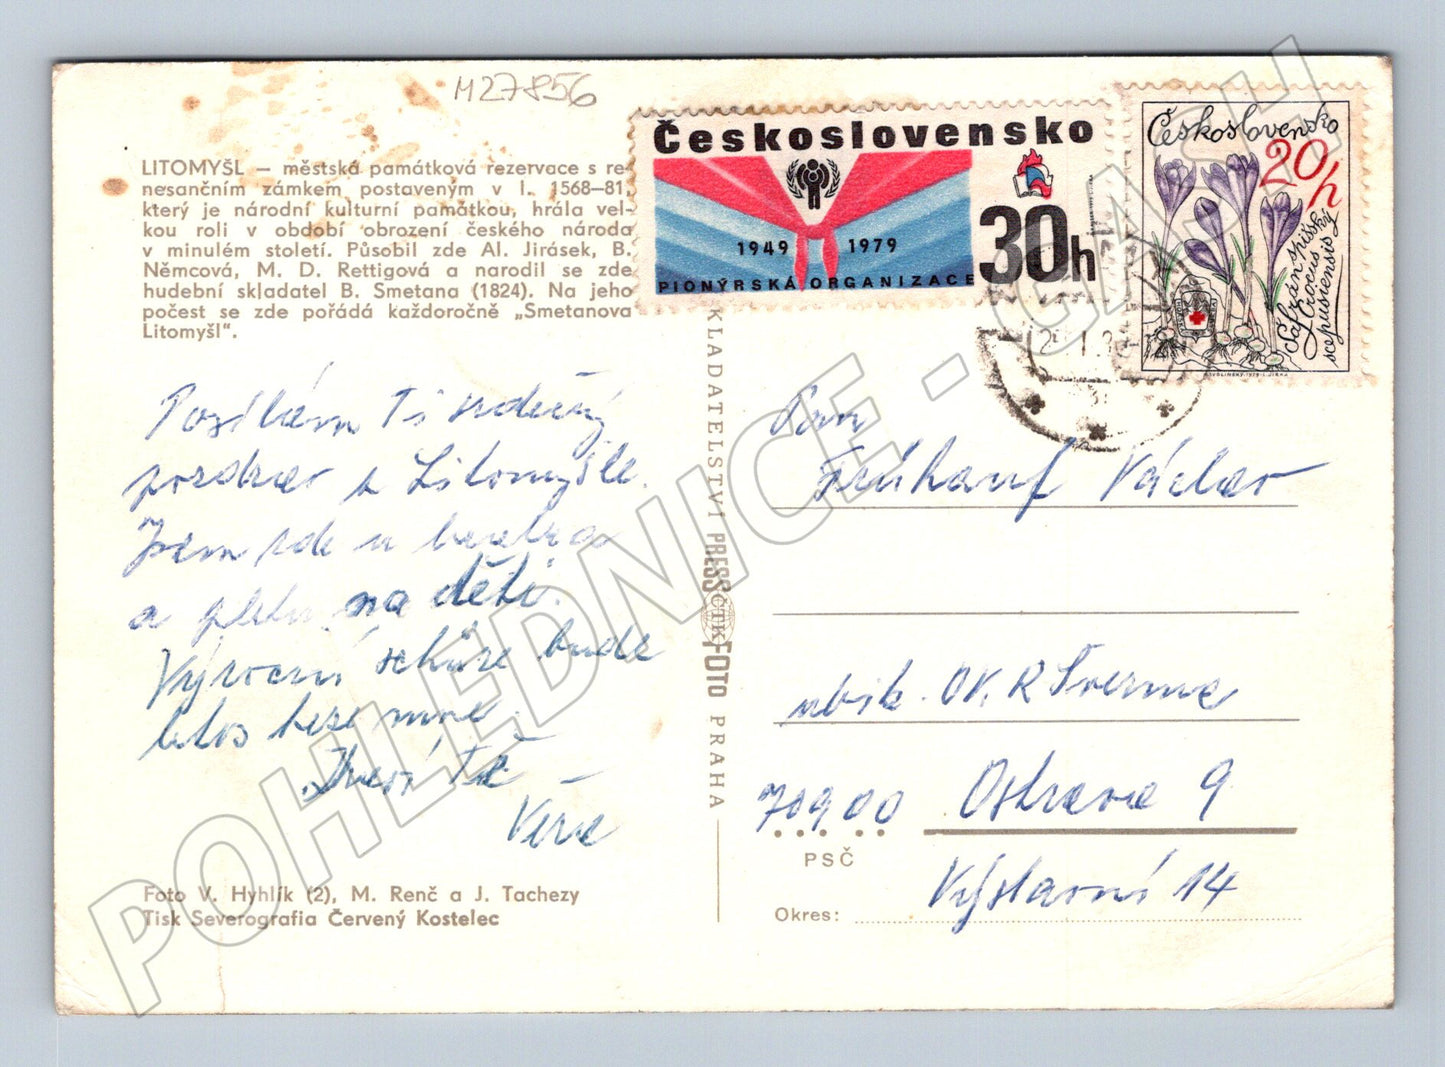 M27856
LITOMYŠL – městská památková rezervace s re-
nesančním zámkem postaveným v l. 1568–81,
který je národní kulturní památkou, hrála vel-
kou roli v období obrození českého národa
v minulém století. Působil zde Al. Jirásek, B.
Němcová, M. D. Rettigová a narodil se zde
hudební skladatel B. Smetana (1824). Na jeho
počest se zde pořádá každoročně „Smetanova
Litomyšl“.
Posílám Ti srdečný
pozdrav z Litomyšle.
Jsem zde u bratra
a na děti.
Výroční schůze bude
letos beze mne.
Zdraví Tě
Věra
Foto V. Hyhlík (2), M. Renč a J. Tachezy
Tisk Severografia Červený Kostelec
NAKLADATELSTVÍ PRESSFOTO PRAHA
ČTK
Československo
1949 1979
30h
PIONÝRSKÁ ORGANIZACE
Československo
20h
Šafrán spišský
Crocus
scepusiensis
Pan
Frühauf Václav
ubik. OK. R Šverma
70900 Ostrava 9
PSČ
Výstavní 14
Okres:
POHLEDNICE - CASH